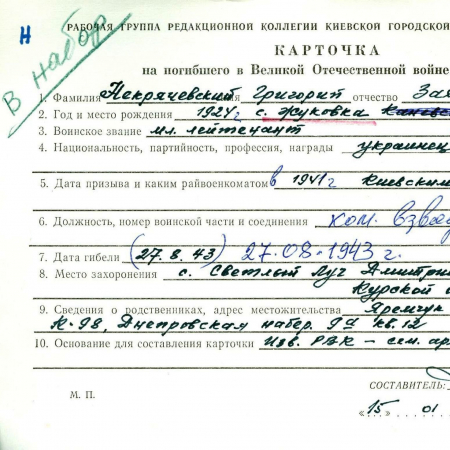 РАБОЧАЯ ГРУППА РЕДАКЦИОННОЙ КОЛЛЕГИИ КИЕВСКОЙ ГОРОДСКОЙ
Н
В набор
КАРТОЧКА
на погибшего в Великой Отечественной войне
1. Фамилия Некрячевский имя Григорий отчество За
2. Год и место рождения 1924 г с. Жуковка
3. Воинское звание мл. лейтенант
4. Национальность, партийность, профессия, награды украинец
5. Дата призыва и каким райвоенкоматом в 1941 г Киевским
6. Должность, номер воинской части и соединения ком. взвода
7. Дата гибели (27.8.43) 27.08.1943 г.
8. Место захоронения с. Светлый Луч Дмитри
Курской
9. Сведения о родственниках, адрес местожительства Яремчук
К-98, Днепровская набер. 9а кв. 12
10. Основание для составления карточки Изв. РВК – сем. ар
СОСТАВИТЕЛЬ:
М. П.
«15» 01